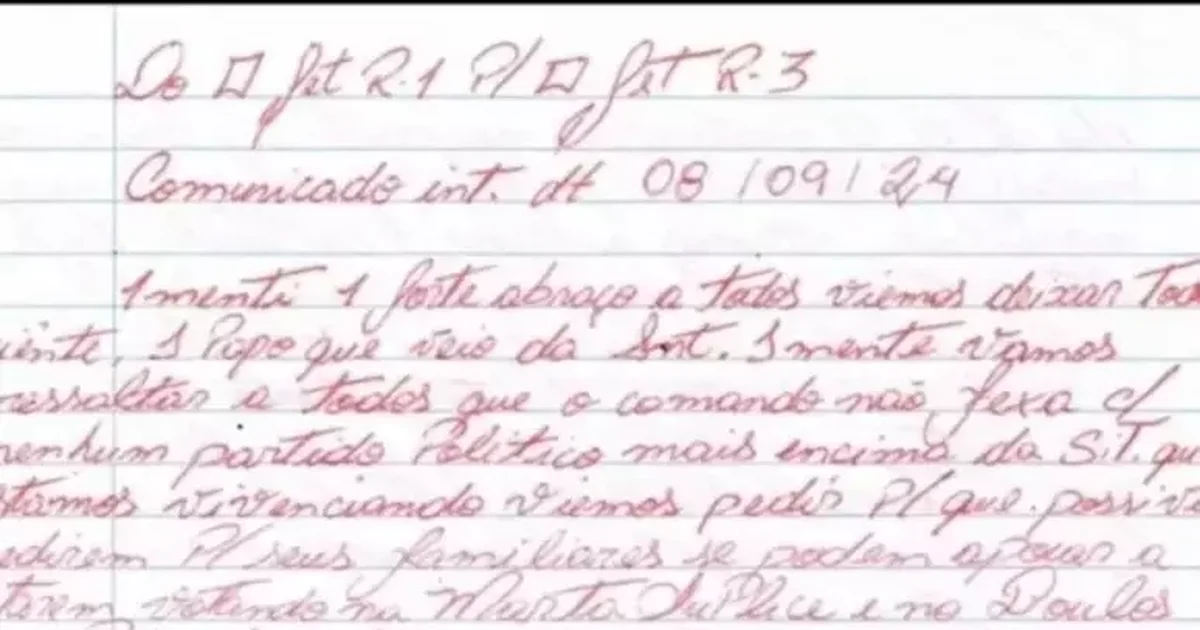 Do □ Jet R-1 P/ □ Jet R-3
Comunicado int. dt 08/09/24
1menti 1 forte abraço a todos viemos deixar Tod
iente, 1 Papo que veio da Sint. 1mente vamos
ressaltar a todos que o comando não fexa c/
nenhum partido Politico mais encima da S.T. qu
stamos vivenciando viemos pedir P/ que possiv
edirem P/ seus familiares se podem apoiar a
tarem votando na Marta Suplice e no Boulos